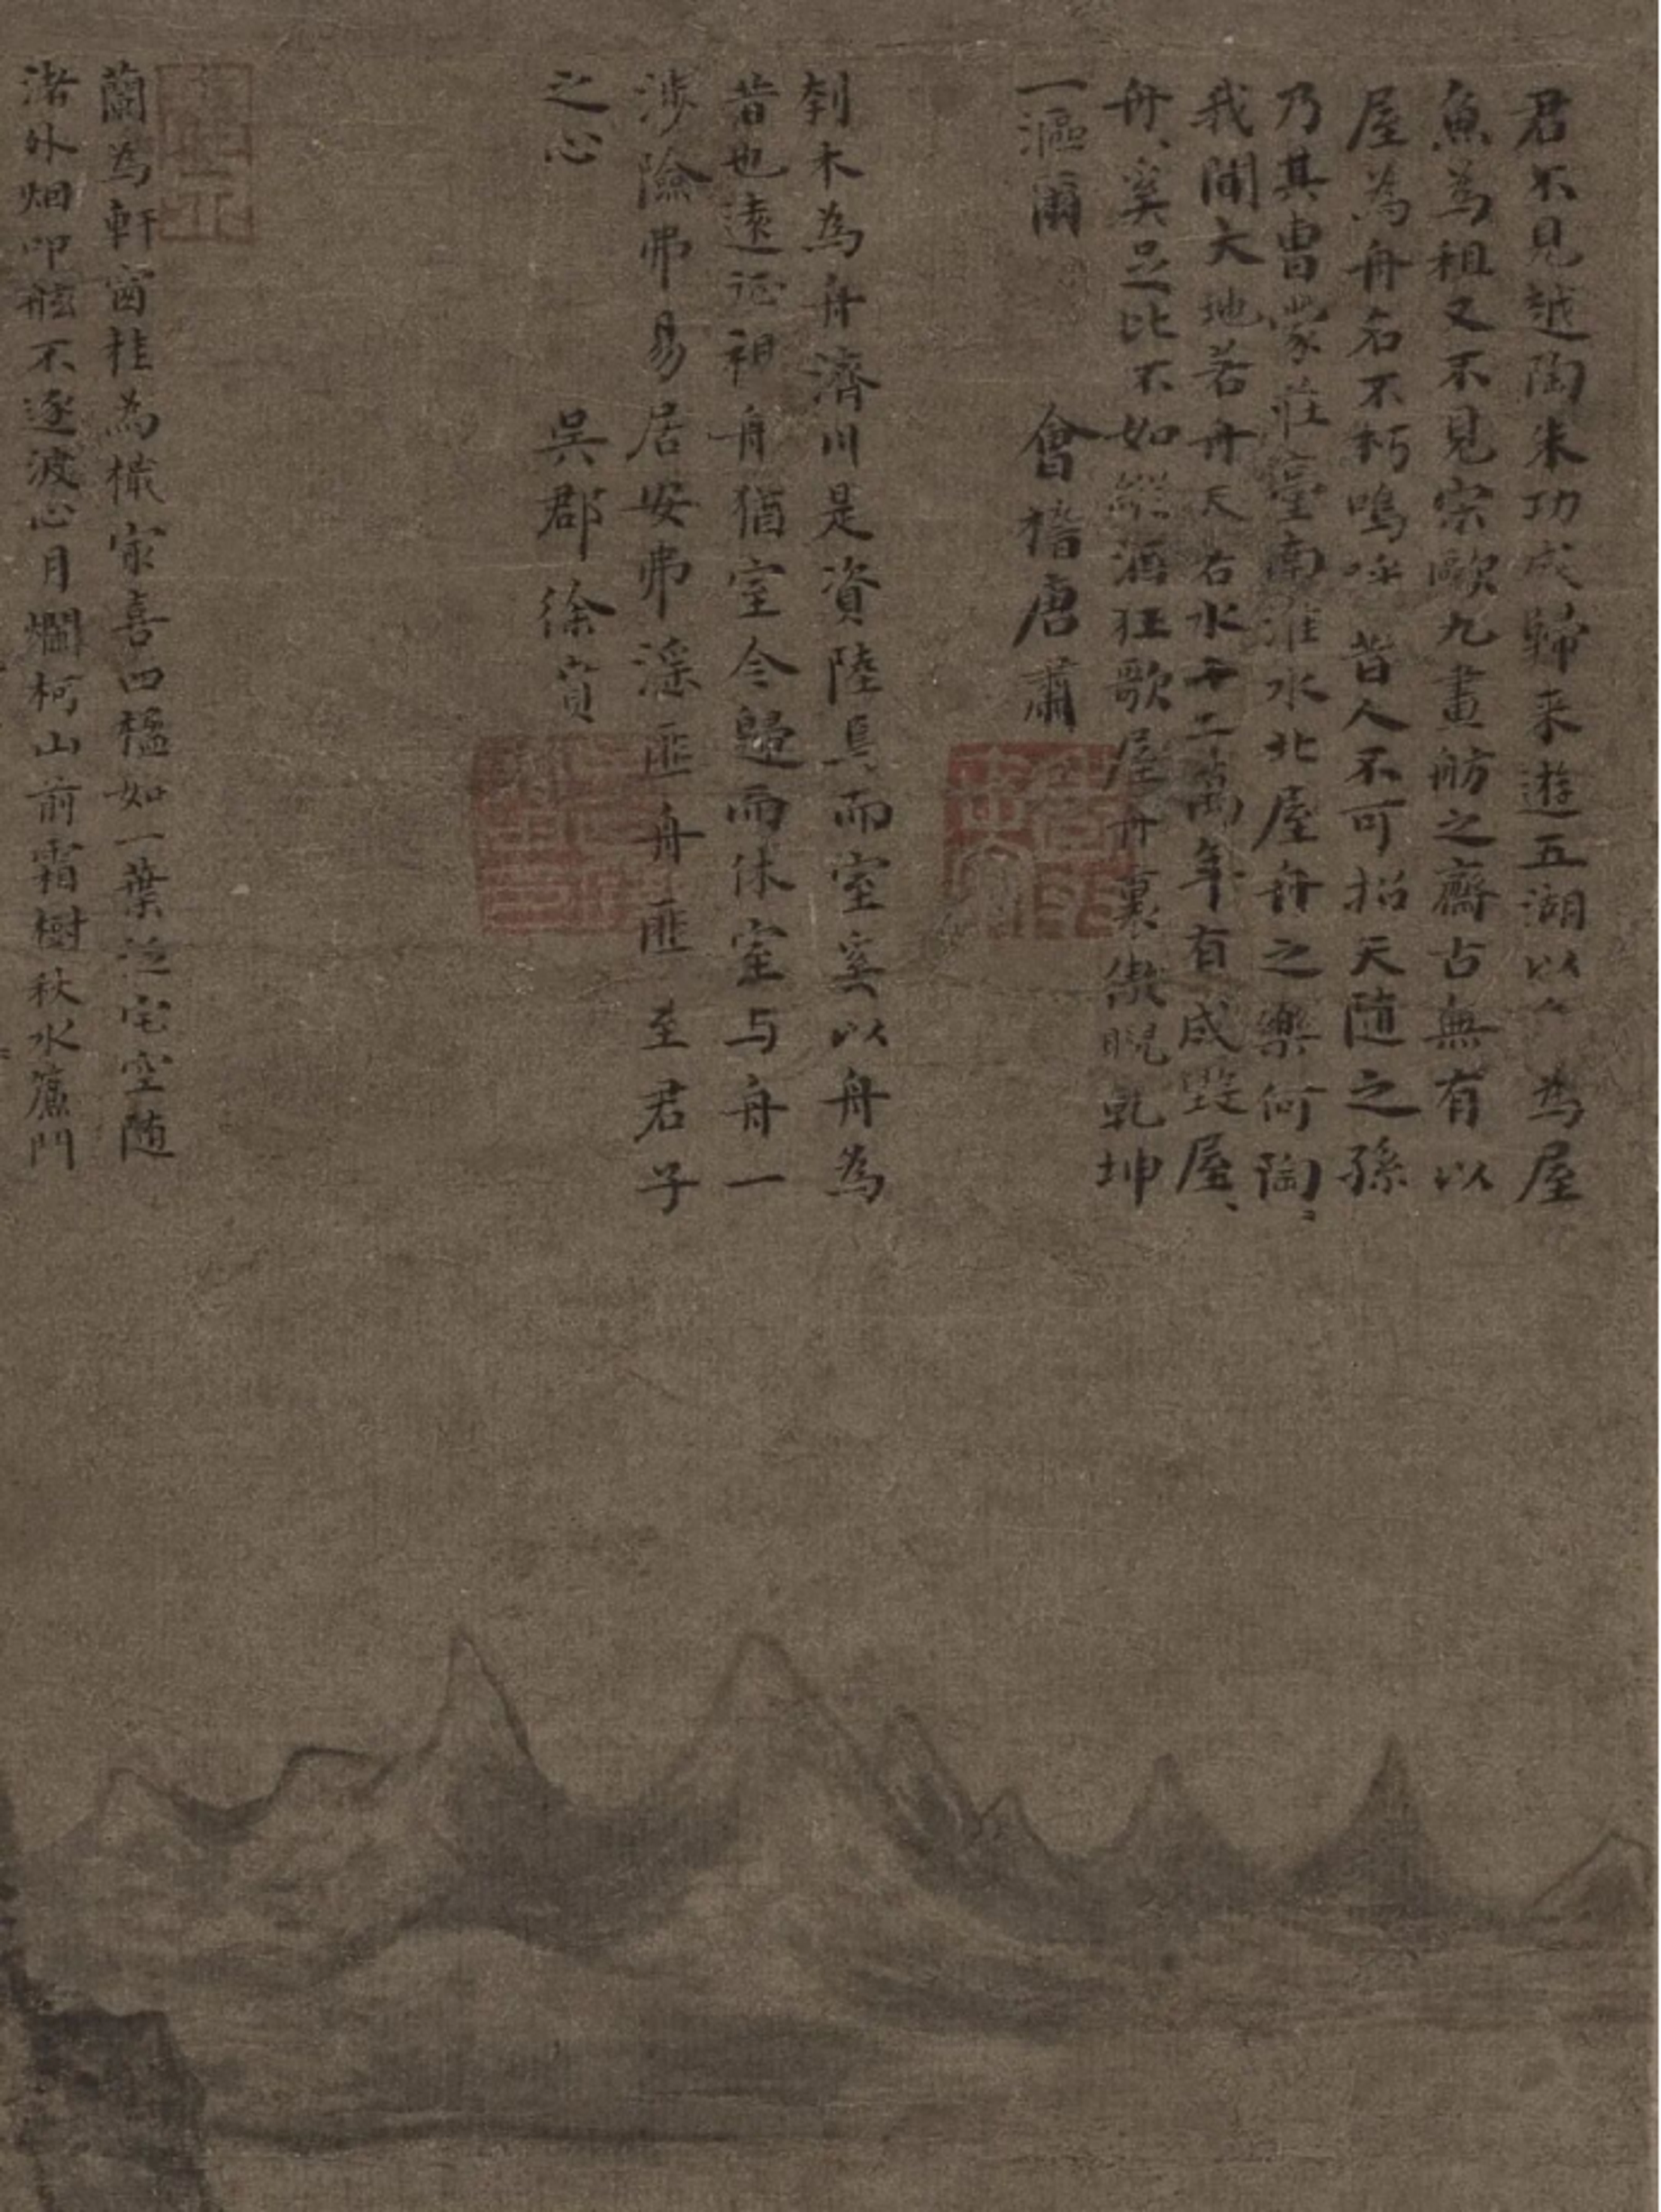 君不見越陶朱功成歸来遊五湖以〻為屋
魚為祖又不見宋歐九畫舫之齋古無有以
屋為舟名不朽嗚呼昔人不可招天随之孫
乃其曹蒙莊臺南淮水北屋舟之樂何陶〻
我聞大地若舟天右水千二萬年有成毀屋〻
舟〻奚足比不如縱酒狂歌屋舟裏傲睨乾坤
一漚爾 會稽唐肅
刳木為舟濟川是資陸具而室奚以舟為
昔也遠征視舟猶室今歸而休室与舟一
涉險弗易居安弗滛匪舟匪室君子
之心 吳郡徐賁
蘭為軒窗桂為檥家喜四楹如一葉泛宅空随
渚外烟叩舷不逐波心月爛柯山前霜樹秋水簾門